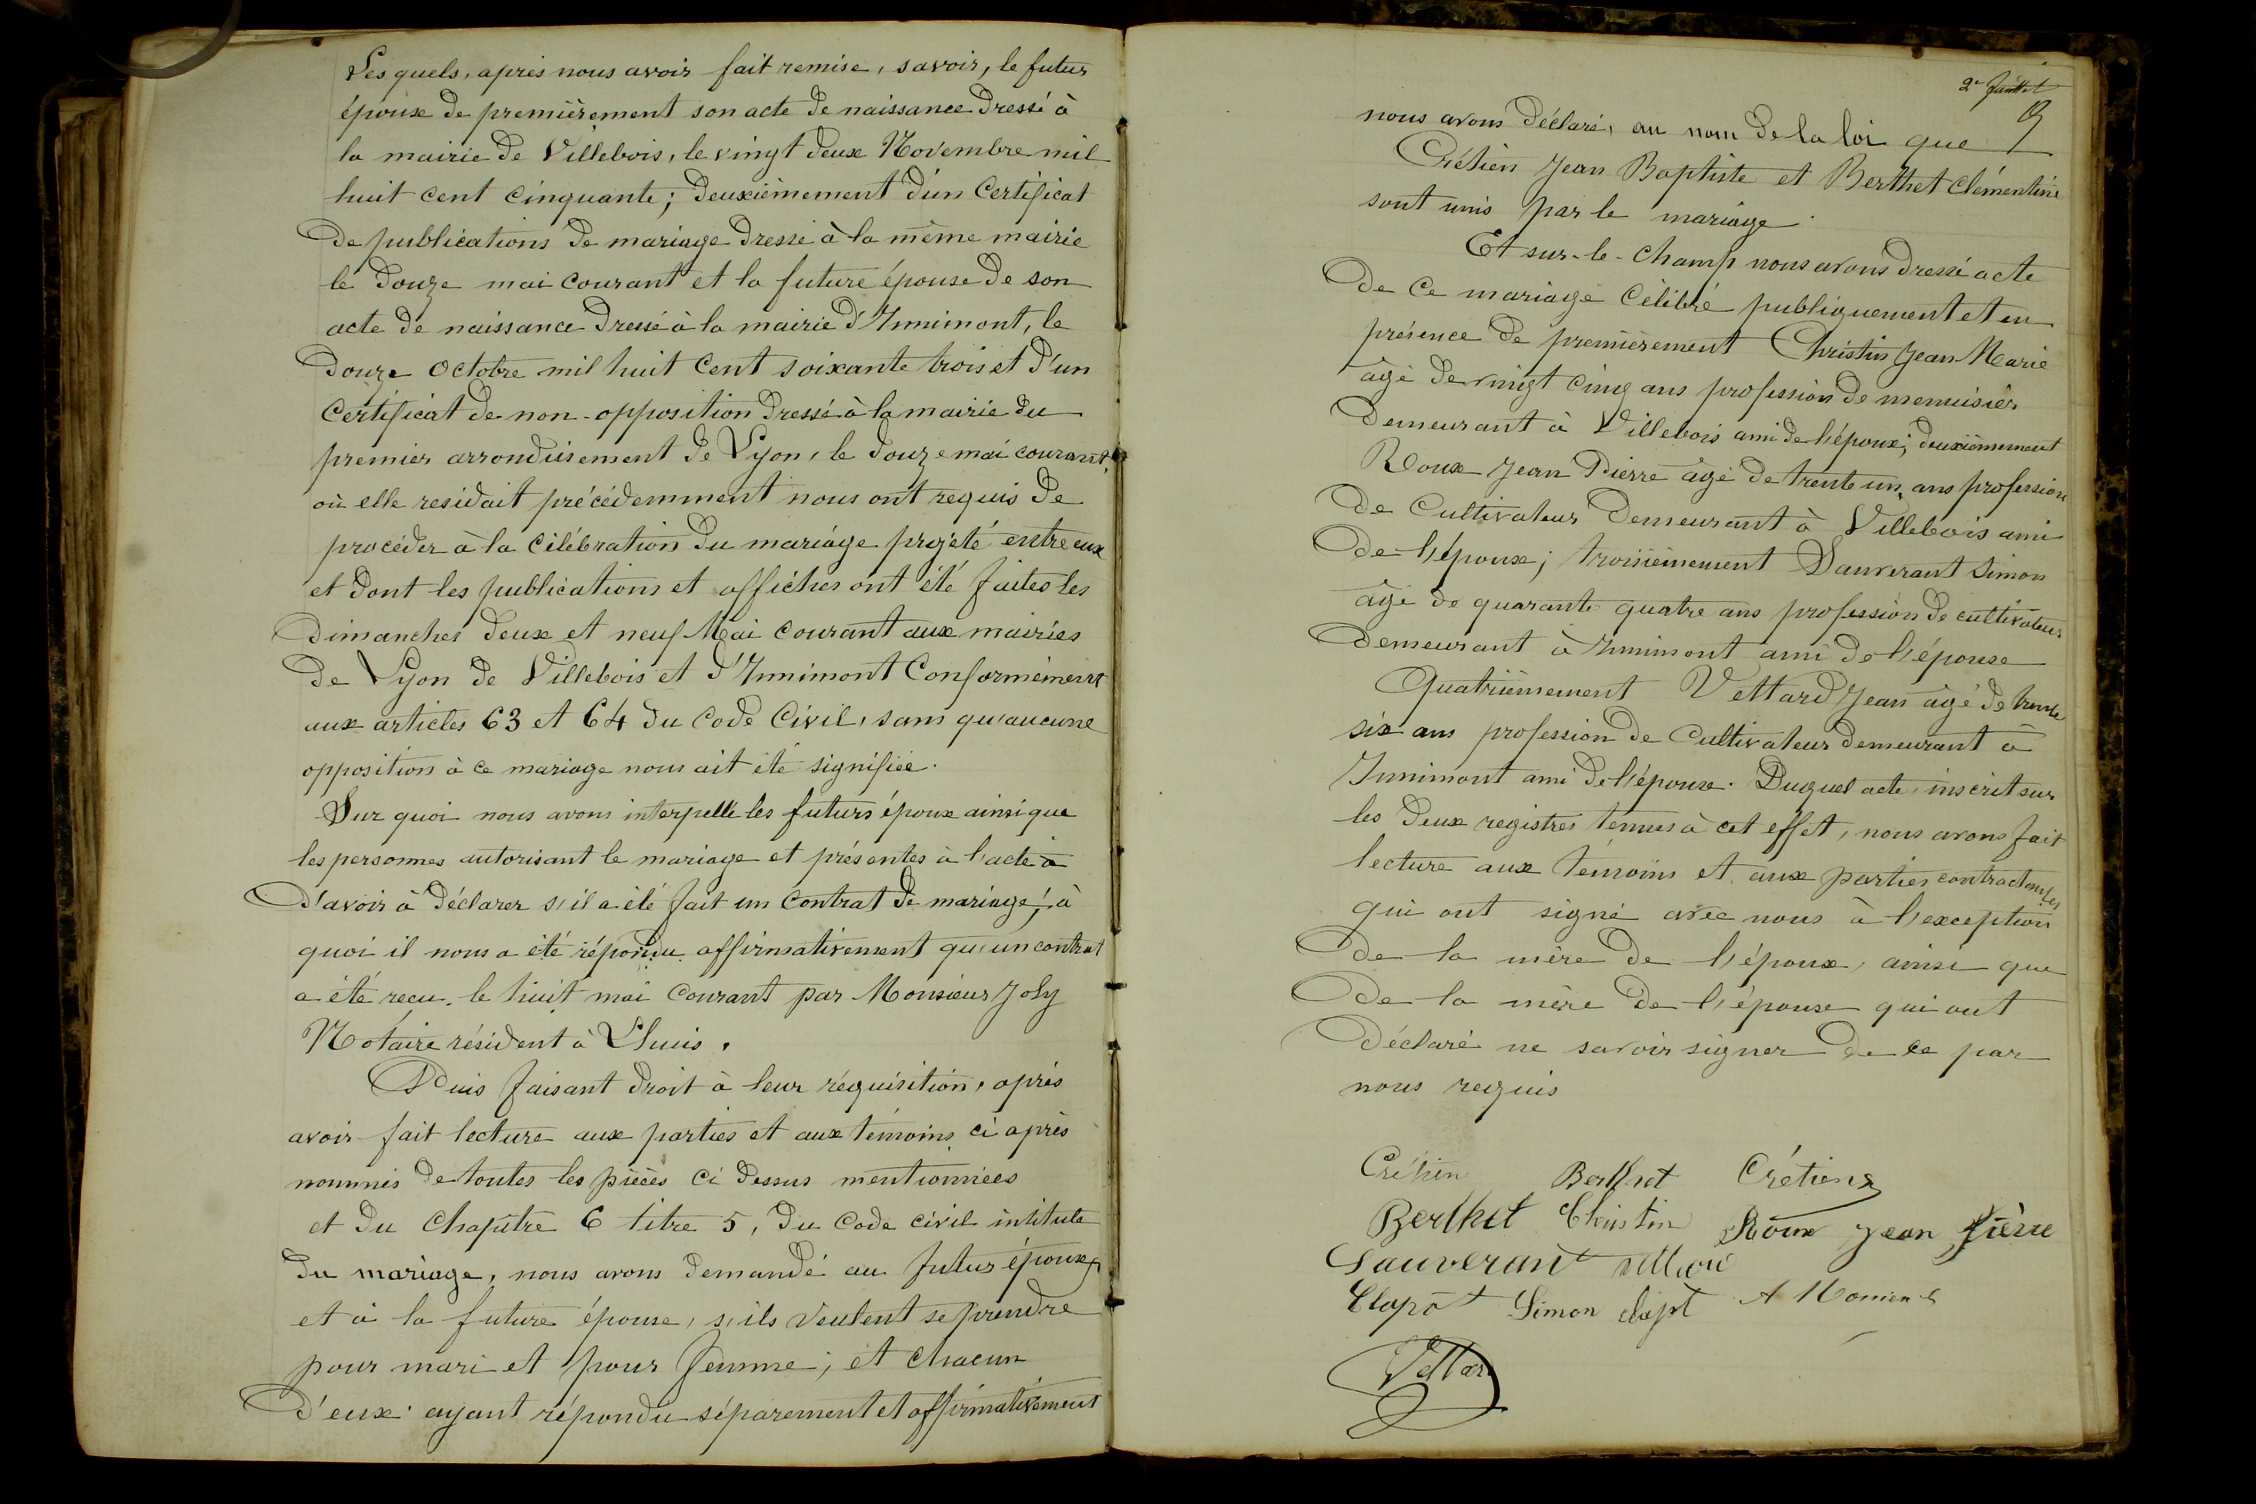 Lesquels, après nous avoir fait remise, savoir, le futur
époux de premièrement son acte de naissance dressé à
la mairie de Villebois, le vingt deux Novembre mil
huit cent cinquante; deuxièmement d'un Certificat
de publications de mariage dressé à la même mairie
le douze mai courant et la future épouse de son
acte de naissance dressé à la mairie d'Innimont, le
douze Octobre mil huit cent soixante trois et d'un
Certificat de non-opposition dressé à la mairie du
premier arrondissement de Lyon, le douze mai courant,
où elle residait précédemment nous ont requis de
procéder à la célébration du mariage projeté entre eux
et dont les publications et affiches ont été faites les
dimanches deux et neuf Mai courant aux mairies
de Lyon de Villebois et d'Innimont Conformément
aux articles 63 et 64 du Code Civil, sans qu'aucune
opposition à ce mariage nous ait été signifiée.
Sur quoi nous avons interpellé les futurs époux ainsi que
les personnes autorisant le mariage et présentes à l'acte à
d'avoir à déclarer s'il a été fait un contrat de mariage, à
quoi il nous a été répondu affirmativement qu'un contrat
a été reçu le huit mai courant par Monsieur Joly
Notaire résident à Lhuis.
Puis faisant droit à leur réquisition, après
avoir fait lecture aux parties et aux témoins ci après
nommés de toutes les pièces ci dessus mentionnées
et du Chapitre 6 titre 5, du Code civil intitulé
du mariage, nous avons demandé au futur époux
et à la future épouse, s'ils veulent se prendre
pour mari et pour femme; et chacun
d'eux ayant répondu séparement et affirmativement
2e feuillet
nous avons déclaré, au nom de la loi que
Crétien Jean Baptiste et Berthet Clémentine
sont unis par le mariage.
Et sur-le-champ nous avons dressé acte
de ce mariage célébré publiquement et en
présence de premièrement Christin Jean Marie
âgé de vingt cinq ans profession de menuisier
demeurant à Villebois ami de l'époux; deuxièmement
Roux Jean Pierre âgé de trente un ans profession
de Cultivateur demeurant à Villebois ami
de l'époux; troisièmement Sauverant Simon
âgé de quarante quatre ans profession de cultivateur
demeurant à Innimont ami de l'épouse
Quatrièmement Vettard Jean âgé de trente
six ans profession de Cultivateur demeurant à
Innimont ami de l'épouse. Duquel acte, inscrit sur
les deux registres tenus à cet effet, nous avons fait
lecture aux témoins et aux parties contractantes
qui ont signé avec nous à l'exception
de la mère de l'époux, ainsi que
de la mère de l'épouse qui ont
déclaré ne savoir signer de ce par
nous requis
Crétien Berthet Crétien
Berthet Christin Roux Jean Pierre
Sauverant
Clapot Simon
Vettard